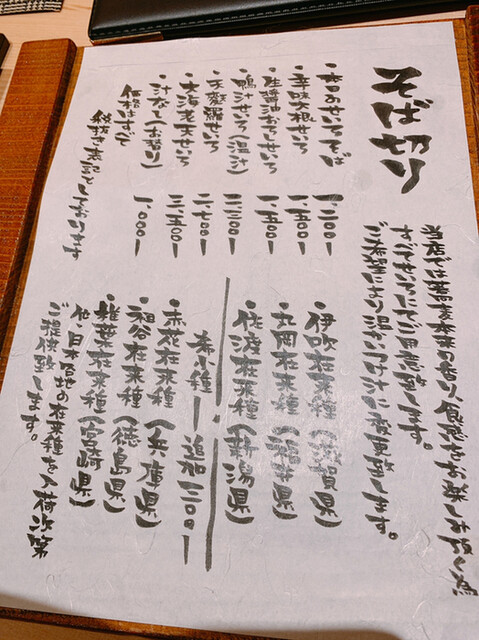 そば切り
当店では蕎麦本来の香り、食感をお楽しみ頂く為
すべてせいろにてご用意致します。
ご希望により温かいつけ汁に変更致します。
・本日のせいろそば 一、二〇〇ー
・辛味大根せいろ 一、五〇〇ー
・生醤油おろしせいろ 一、五〇〇ー
・鴨汁せいろ（温汁） 二、二〇〇ー
・天麩羅せいろ 二、七〇〇ー
・大海老天せいろ 三、五〇〇ー
・汁なし（お替り） 一、〇〇〇ー
価格はすべて
税抜き表記としております
・伊吹在来種（滋賀県）
・丸岡在来種（福井県）
・佐渡在来種（新潟県）
希少種ー追加二〇〇ー
・赤花在来種（兵庫県）
・祖谷在来種（徳島県）
・椎葉在来種（宮崎県）
他、日本各地の在来種を入荷次第
ご提供致します。